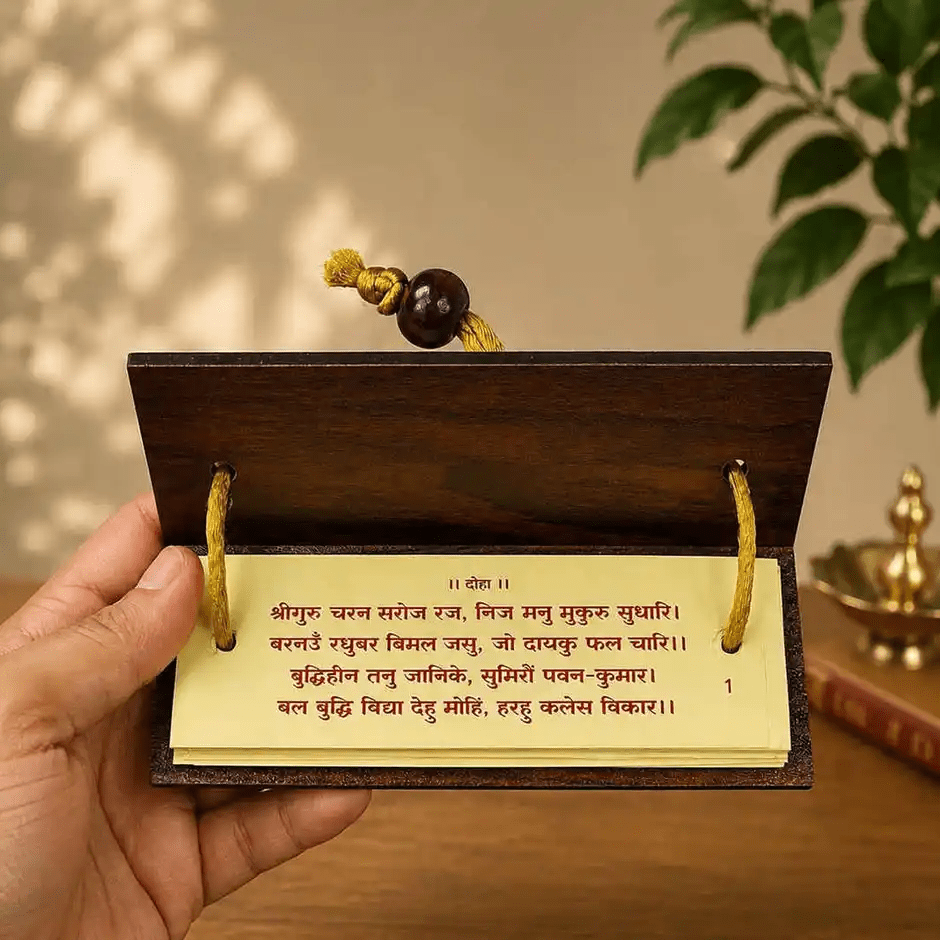 ।। दोहा ।।
श्रीगुरु चरन सरोज रज, निज मनु मुकुरु सुधारि।
बरनउँ रधुबर बिमल जसु, जो दायकु फल चारि।।
बुद्धिहीन तनु जानिके, सुमिरौं पवन-कुमार।
बल बुद्धि विद्या देहु मोहिं, हरहु कलेस विकार।।
1